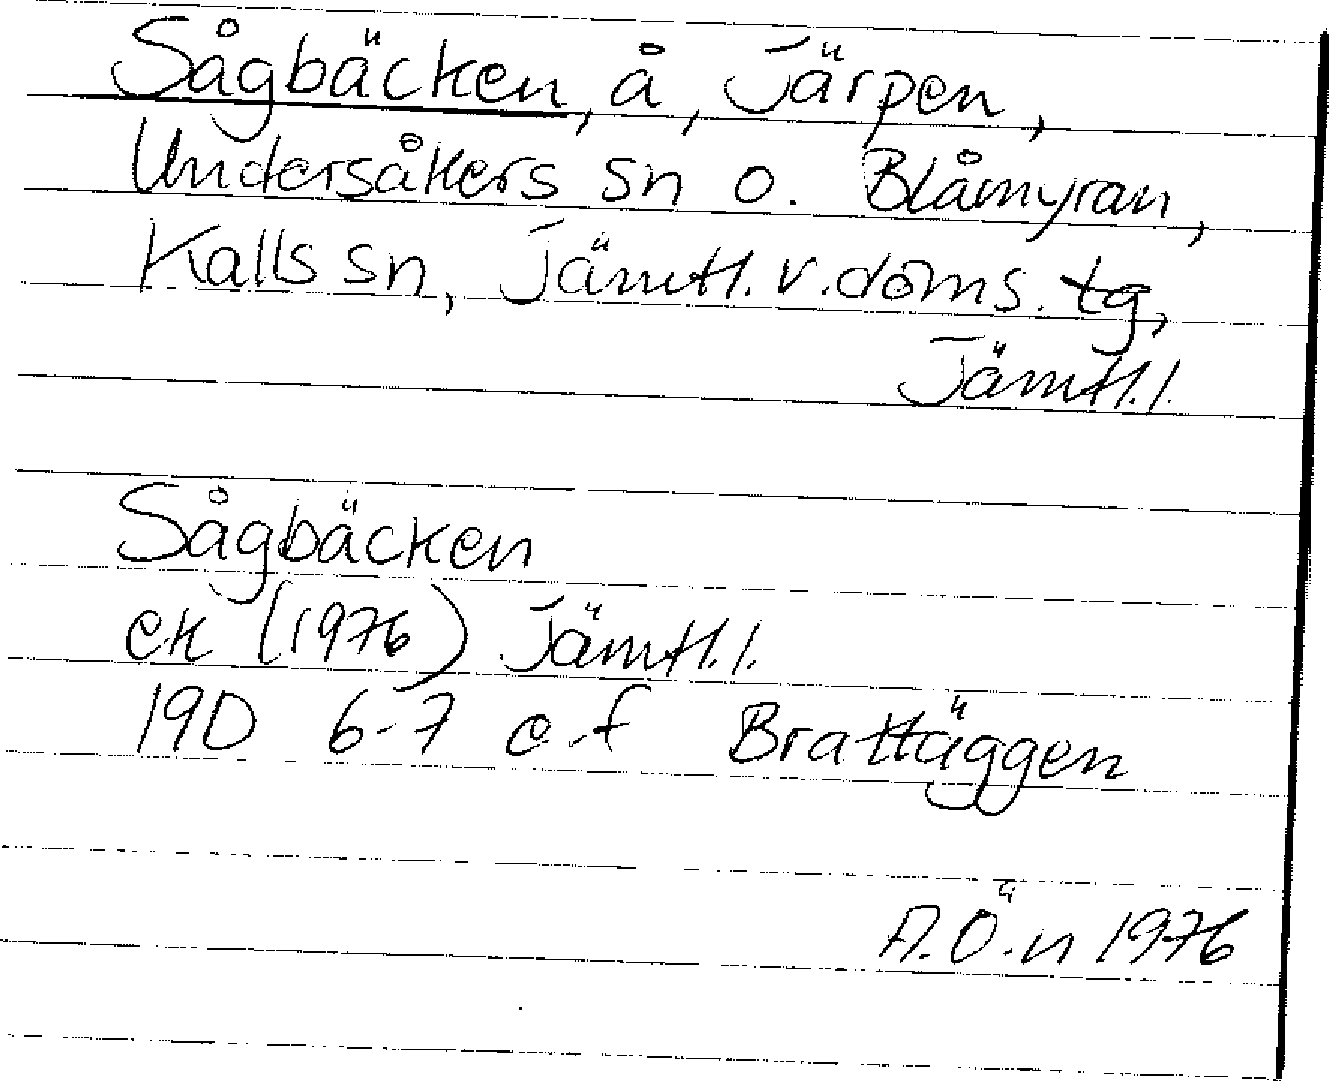 Sågbäcken, å, Järpen,
Undersåkers sn o. Blåmyran,
Kalls sn, Jämtl. v. doms. tg,
Jämtl. l.
Sågbäcken
ek (1976) Jämtl. l.
19D 6-7 e-f Brattäggen
A. Ö-n 1976